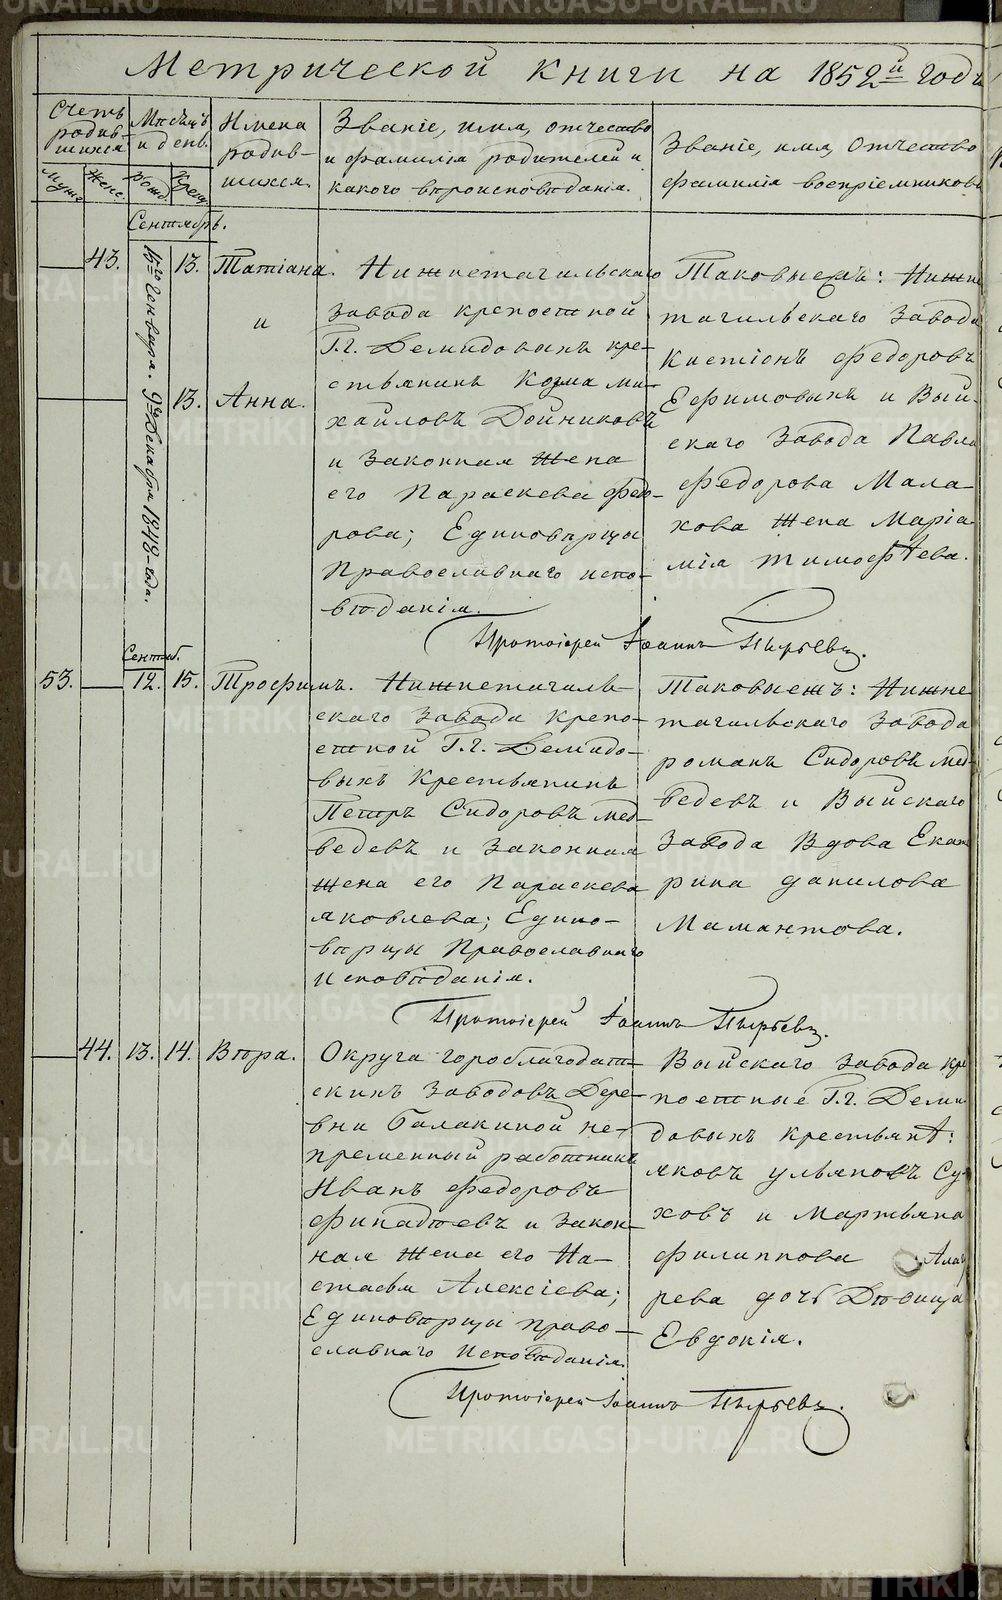 Метрической книги на 1852й годъ
Счетъ родив-шихся
Мѣсяцъ и день.
Имена родив-шихся
Званіе, имя, отчество и фамилія родителей и какого вѣроисповѣданія.
Званіе, имя, отчество фамилія воспріемниковъ
Муж.
Женс.
Рожд.
Крещ.
Сентябрь.
43.
15го Генваря. 9го Декабря 1848-года.
13.
Татіана.
и
13.
Анна.
Нижнетагильскаго
завода крепостной
Г.г. Демидовыхъ кре-
стьянинъ Козма Ми-
хайловъ Дойниковъ
и Законная Жена
его Параскева Фео-
рова; Единовѣрцы
Православнаго испо-
вѣданія.
Таковыежъ: Нижне
тагильскаго Завода
Кистіонъ Федоровъ
Ефимовыхъ и Вый-
скаго Завода Павла
Федорова Мала-
хова Жена Маріа-
мія Тимофѣева.
Протоіерей Іоаннъ Пырьевъ.
Сентяб.
53.
12.
15.
Трофимъ.
Нижнетагиль-
скаго Завода Крепо-
стной Г.г. Демидо-
выхъ Крестьянинъ
Петръ Сидоровъ Мед-
ведевъ и Законная
Жена его Параскева
Яковлева; Едино-
вѣрцы Православнаго
Исповѣданія.
Таковыежъ: Нижне
тагильскаго Завода
Романъ Сидоровъ Мед-
ведевъ и Выйскаго
Завода Вдова Екате
рина Данилова
Мамантова.
Протоіерей Іоаннъ Пырьевъ.
44.
13.
14.
Вѣра.
Округа Гороблагодат-
скихъ Заводовъ Дере-
вни Балакиной не-
пременный работникъ
Иванъ Федоровъ
Финадѣевъ и Закон-
ная Жена его На-
стасья Алексіева;
Единовѣрцы право-
славнаго Исповѣданія.
Выйскаго Завода кре
постные Г.г. Деми
довыхъ крестьянѣ:
Яковъ Ульяновъ Су-
ховъ и Мартьяна
Филиппова
рева дочь Дѣвица
Евдокія.
Протоіерей Іоаннъ Пырьевъ.
METRIKI.GASO-URAL.RU